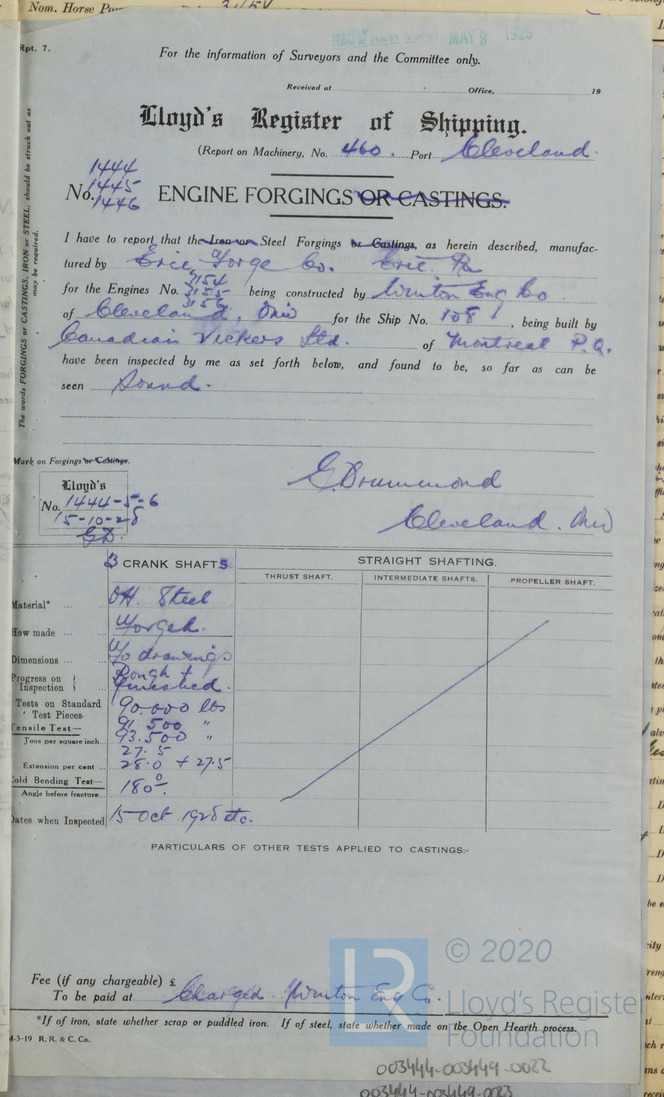 Nom. Horse Pow
MAY 9 1929
Rpt. 7.
For the information of Surveyors and the Committee only.
Received at Office, 19
Lloyd's Register of Shipping.
(Report on Machinery, No. 460. Port Cleveland.
1444
1445
No. 1446 ENGINE FORGINGS OR CASTINGS.
The words FORGINGS or CASTINGS, IRON or STEEL, should be struck out as may be required.
I have to report that the Iron or Steel Forgings or Castings, as herein described, manufac-
tured by Erie Forge Co. Erie. Pa
for the Engines No. 3154 3155 3156 being constructed by Winton Eng Co
of Cleveland, Ohio for the Ship No. 108, being built by
Canadian Vickers Ltd. of Montreal P.Q.
have been inspected by me as set forth below, and found to be, so far as can be
seen Sound.
Mark on Forgings or Castings.
Lloyd's
No. 1444-5-6
15-10-28
G.D.
G. Drummond
Cleveland. Ohio
3 CRANK SHAFTS STRAIGHT SHAFTING.
THRUST SHAFT. INTERMEDIATE SHAFTS. PROPELLER SHAFT.
Material* ... OH. Steel
How made ... Forged.
Dimensions ... drawings
Progress on Inspection Rough + finished.
Tests on Standard Test Pieces. 90.000 lbs
Tensile Test— 91.500 "
Tons per square inch. 93.500 "
27.5
Extension per cent ... 28.0 + 27.5
Cold Bending Test— 180°.
Angle before fracture
Dates when Inspected 15 Oct 1928 etc.
PARTICULARS OF OTHER TESTS APPLIED TO CASTINGS:-
Fee (if any chargeable) £
To be paid at Charged. Winton Eng Co.
*If of iron, state whether scrap or puddled iron. If of steel, state whether made on the Open Hearth process.
-3-19 R. R. & C. Co.
LR
© 2020
Lloyd's Register
Foundation
003444-003449-0022
003444-003449-0023